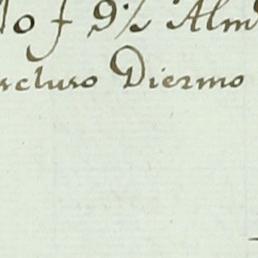 lo f 9 % Alm
scluso Diezmo